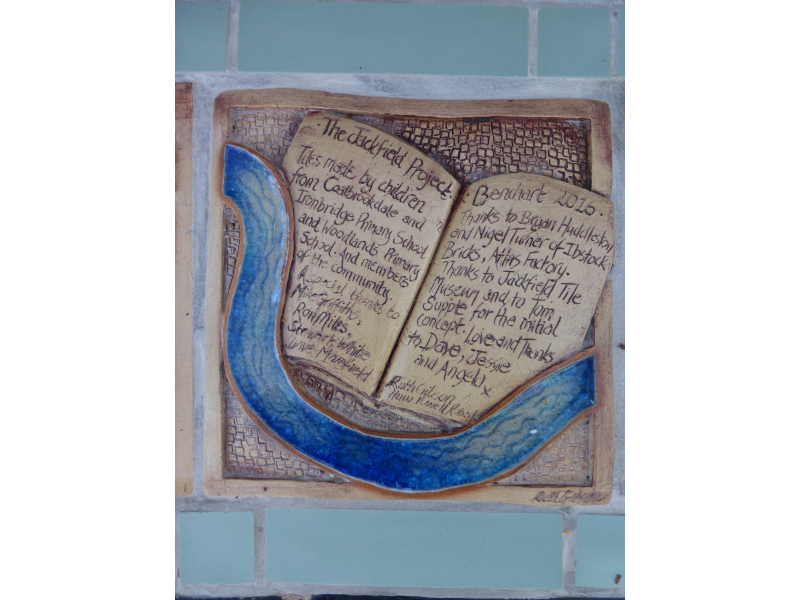 The Jackfield Project.
Tiles made by children
from Coalbrookdale and
Ironbridge Primary School
and Woodlands Primary
School. And members
of the community.
A special thanks to
Mike Griffiths,
Ron Miles,
Stewart White
Benchart 2015.
Thanks to Bryan Huddleston
and Nigel Turner of Ibstock
Bricks, Atlas Factory.
Thanks to Jackfield Tile
Museum and to Tom
Supple for the initial
concept. Love and Thanks
to Dave, Jessie
and Angela x
Ruth Gibson